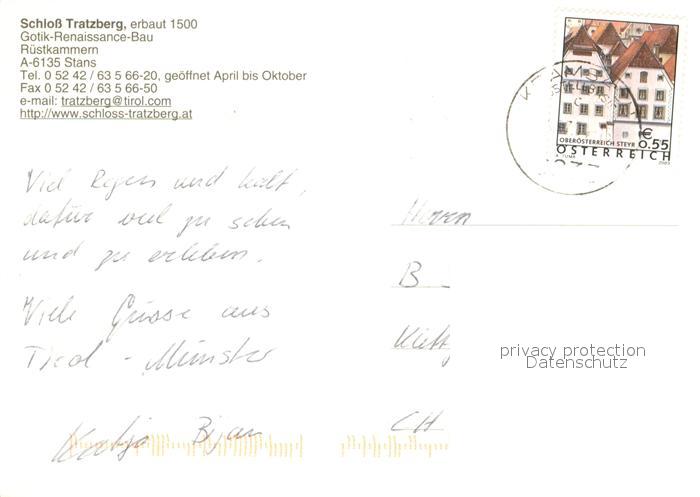 Schloß Tratzberg, erbaut 1500
Gotik-Renaissance-Bau
Rüstkammern
A-6135 Stans
Tel. 0 52 42 / 63 5 66-20, geöffnet April bis Oktober
Fax 0 52 42 / 63 5 66-50
e-mail: tratzberg@tirol.com
http://www.schloss-tratzberg.at
€
0.55
OBERÖSTERREICH STEYR
ÖSTERREICH
Viel Regen und kalt,
dafür viel zu sehen
und zu erleben.
Viele Grüsse aus
Tirol - Münster
Katja Bijan
Herrn
B
CH
privacy protection
Datenschutz